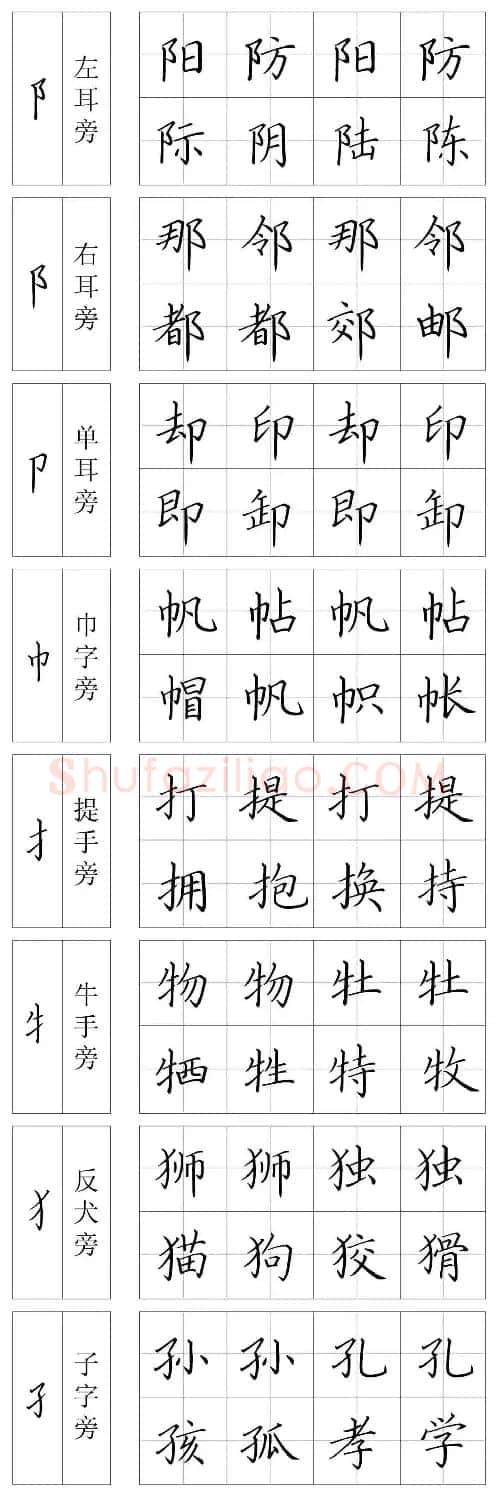 阝 左耳旁 阳 防 阳 防
际 阴 陆 陈
阝 右耳旁 那 邻 那 邻
都 都 郊 邮
卩 单耳旁 却 印 却 印
即 卸 即 卸
巾 巾字旁 帆 帖 帆 帖
帽 帆 帜 帐
Shufaziliao.COM
扌 提手旁 打 提 打 提
拥 抱 换 持
牜 牛手旁 物 物 牡 牡
牺 牲 特 牧
犭 反犬旁 狮 狮 独 独
猫 狗 狡 猾
孑 子字旁 孙 孙 孔 孔
孩 孤 孝 学